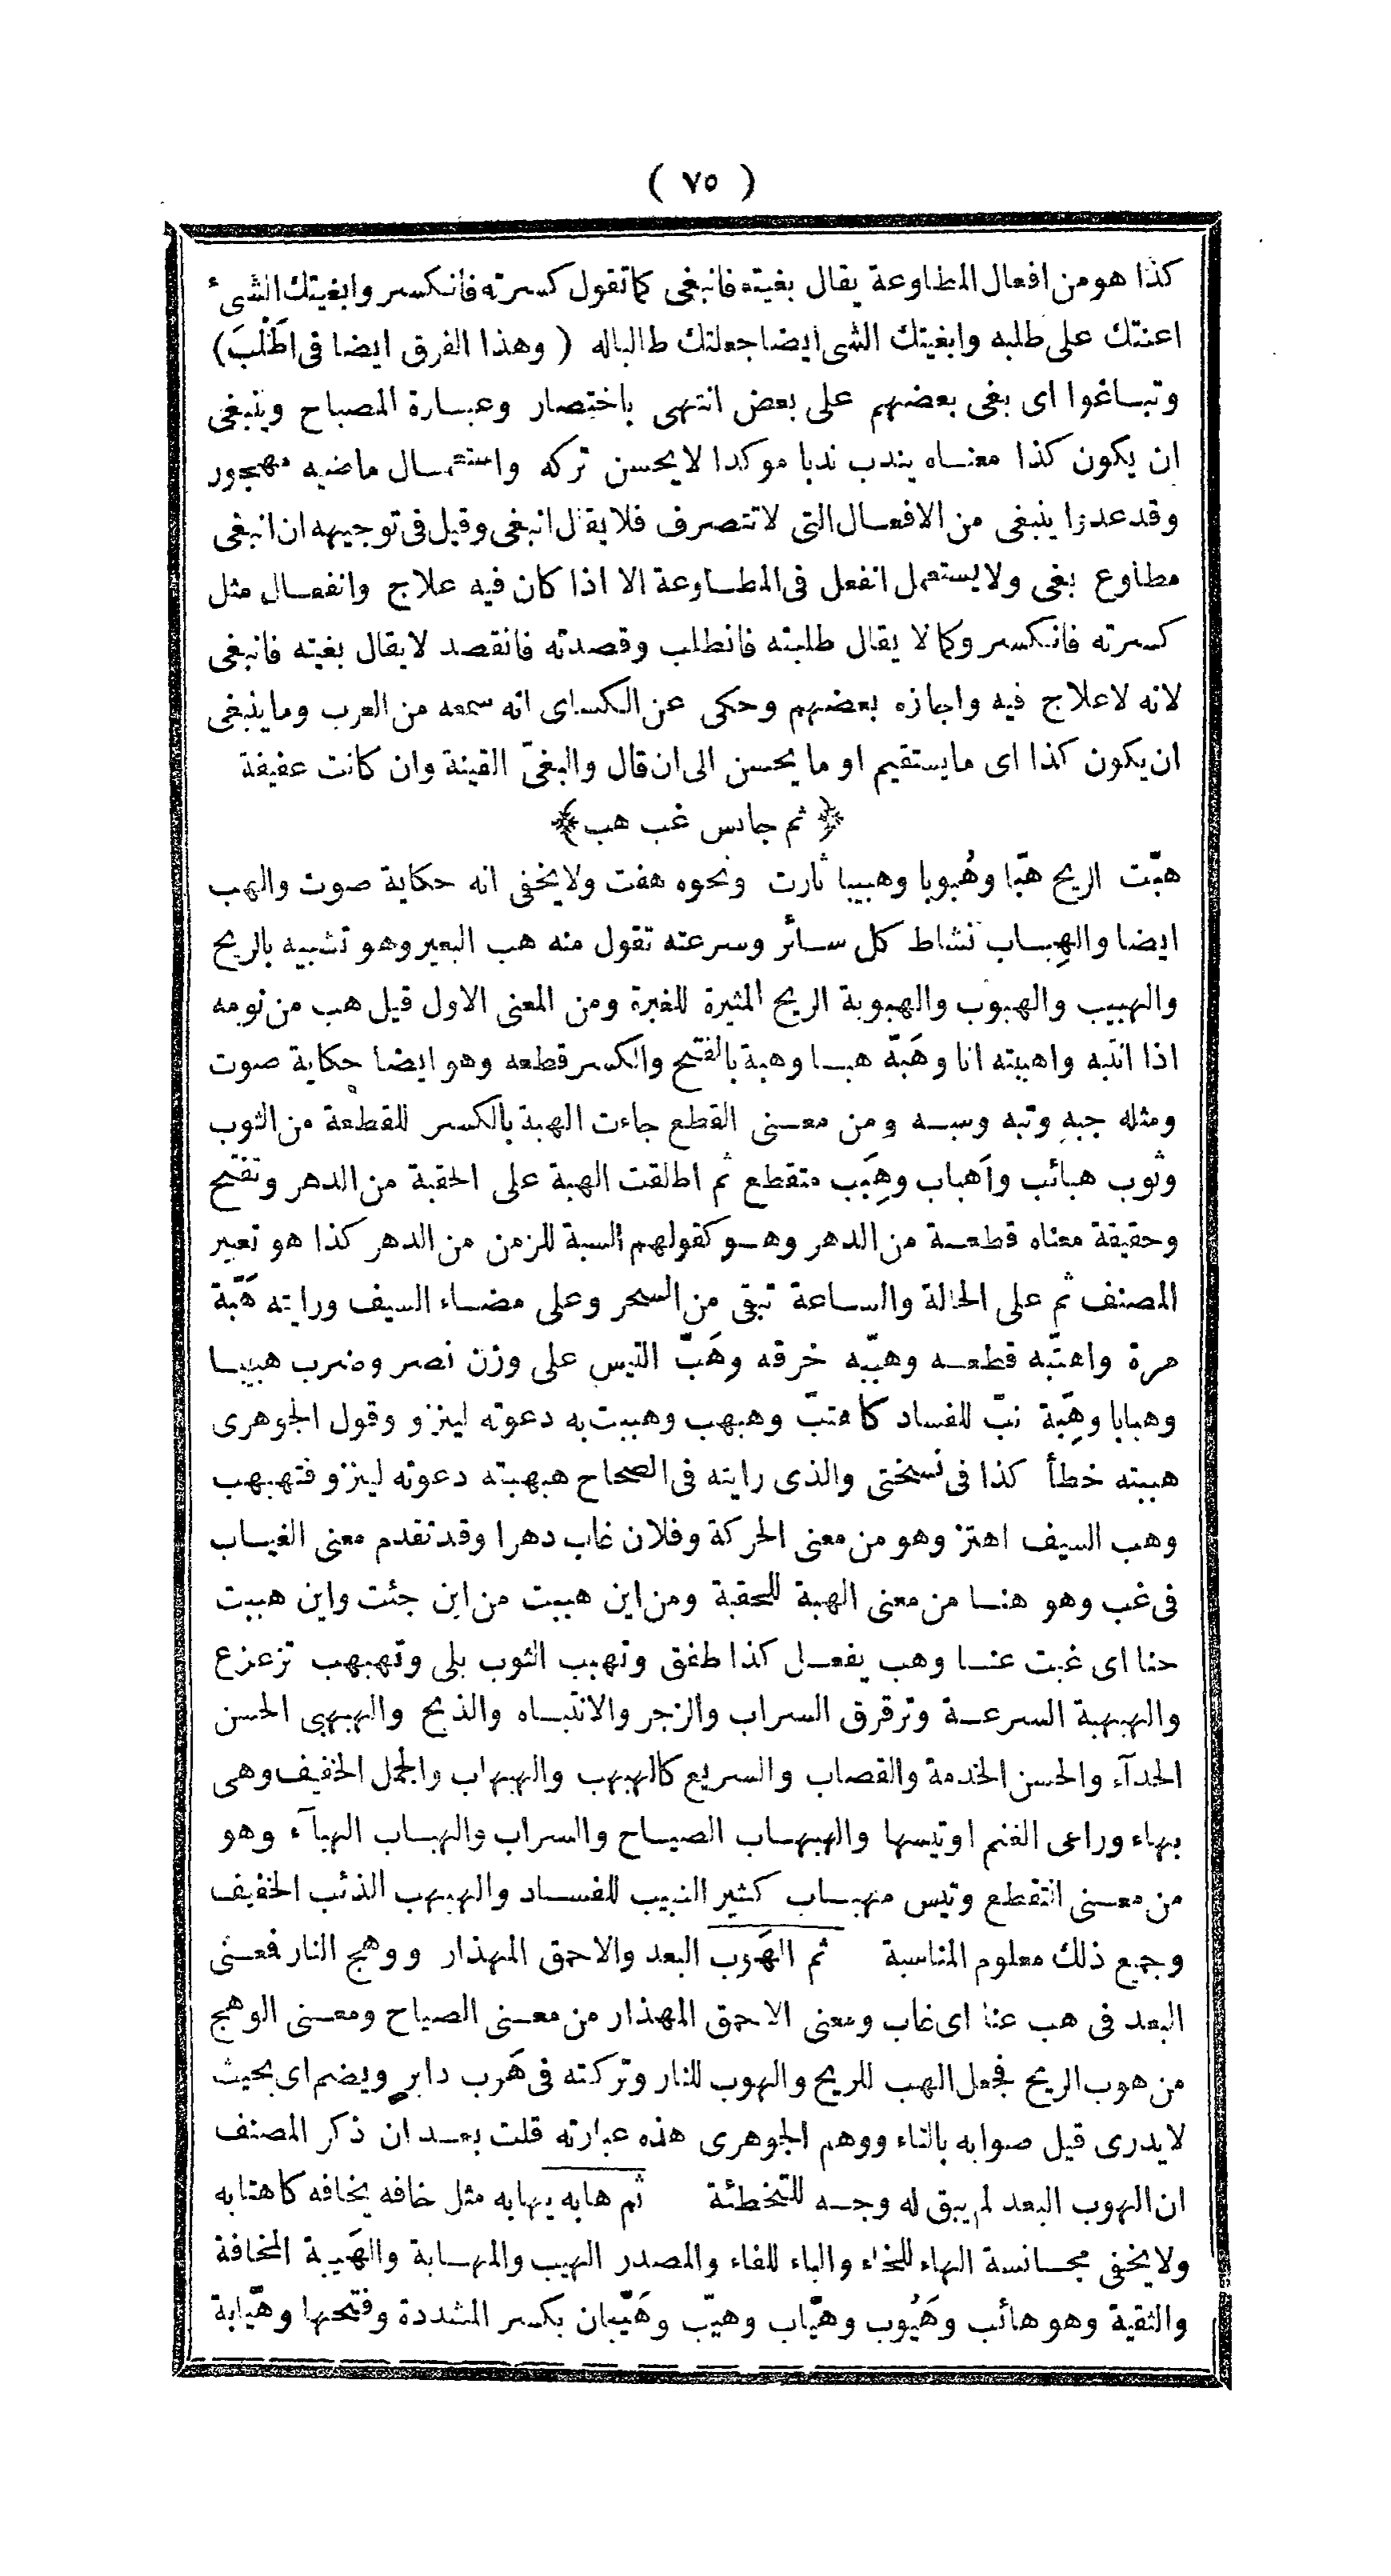 ( ٧٥ )
كذا هو من افعال المطاوعة يقال بغيته فانبغى كما تقول كسرته فانكسر وابغيتك الشىء
اعنتك على طلبه وابغيتك الشى ايضا جعلتك طالبا له ( وهذا الفرق ايضا فى اَطْلَبَ )
وتباغوا اى بغى بعضهم على بعض انتهى باختصار وعبارة المصباح وينبغى
ان يكون كذا معناه يندب ندبا موكدا لا يحسن تركه واستعمال ماضيه مهجور
وقد عدوا ينبغى من الافعال التى لا تتصرف فلا يقال انبغى وقيل فى توجيهه ان انبغى
مطاوع بغى ولا يستعمل انفعل فى المطاوعة الا اذا كان فيه علاج وانفعال مثل
كسرته فانكسر وكما لا يقال طلبته فانطلب وقصدته فانقصد لا يقال بغيته فانبغى
لانه لا علاج فيه واجازه بعضهم وحكى عن الكساى انه سمعه من العرب وما ينبغى
ان يكون كذا اى ما يستقيم او ما يحسن الى ان قال والبغىّ القينة وان كانت عفيفة
﴿ ثم جانس غب هب ﴾
هبّت الريح هبّا وهُبوبا وهبيبا ثارت ونحوه هفت ولا يخفى انه حكاية صوت والهب
ايضا والهِباب نشاط كل سائر وسرعته تقول منه هب البعير وهو تشبيه بالريح
والهبيب والهبوب والهبوبة الريح المثيرة للغبرة ومن المعنى الاول قيل هب من نومه
اذا انتبه واهببته انا وهَبّه هبا وهبة بالفتح والكسر قطعه وهو ايضا حكاية صوت
ومثله جبه وتبه وسبه ومن معنى القطع جاءت الهبة بالكسر للقطعة من الثوب
وثوب هبائب واَهباب وهِبَب متقطع ثم اطلقت الهبة على الحقبة من الدهر وتفتح
وحقيقة معناه قطعة من الدهر وهو كقولهم السبة للزمن من الدهر كذا هو تعبير
المصنف ثم على الحالة والساعة تبقى من السحر وعلى مضاء السيف ورايته هَبّة
مرة واهتبّه قطعه وهبّبه خرقه وهَبّ التيس على وزن نصر وضرب هبيبا
وهبابا وهِبة نبّ للفساد كاهتبّ وهبهب وهببت به دعوته لينزو وقول الجوهرى
هببته خطأ كذا فى نسختى والذى رايته فى الصحاح هبهبته دعوته لينزو فتهبهب
وهب السيف اهتز وهو من معنى الحركة وفلان غاب دهرا وقد تقدم معنى الغياب
فى غب وهو هنا من معنى الهبة للحقبة ومن اين هببت من اين جئت واين هببت
عنا اى غبت عنا وهب يفعل كذا طفق وتهبب الثوب بلى وتهبهب تزعزع
والهبهبة السرعة وترقرق السراب والزجر والانتباه والذبح والهبهبى الحسن
الحدآء والحسن الخدمة والقصاب والسريع كالهبهب والهبهاب والجمل الخفيف وهى
بهاء وراعى الغنم او تيسها والهبهاب الصياح والسراب والهباب الهبآء وهو
من معنى التقطع وتيس مهباب كثير النبيب للفساد والهبهب الذئب الخفيف
وجميع ذلك معلوم المناسبة ثم الهَوب البعد والاحمق المهذار ووهج النار فمعنى
البعد فى هب عنا اى غاب ومعنى الاحمق المهذار من معنى الصياح ومعنى الوهج
من هبوب الريح فجعل الهب للريح والهوب للنار وتركته فى هَوب دابر ويضم اى بحيث
لا يدرى قيل صوابه بالتاء ووهم الجوهرى هذه عبارته قلت بعد ان ذكر المصنف
ان الهوب البعد لم يبق له وجه للتخطئة ثم هابه يهابه مثل خافه يخافه كاهتابه
ولا يخفى مجانسة الهاء للخاء والباء للفاء والمصدر الهيب والمهابة والهَيبة المخافة
والتقية وهو هائب وهَيُوب وهيّاب وهيّب وهَيّبان بكسر المشددة وفتحها وهيّابة